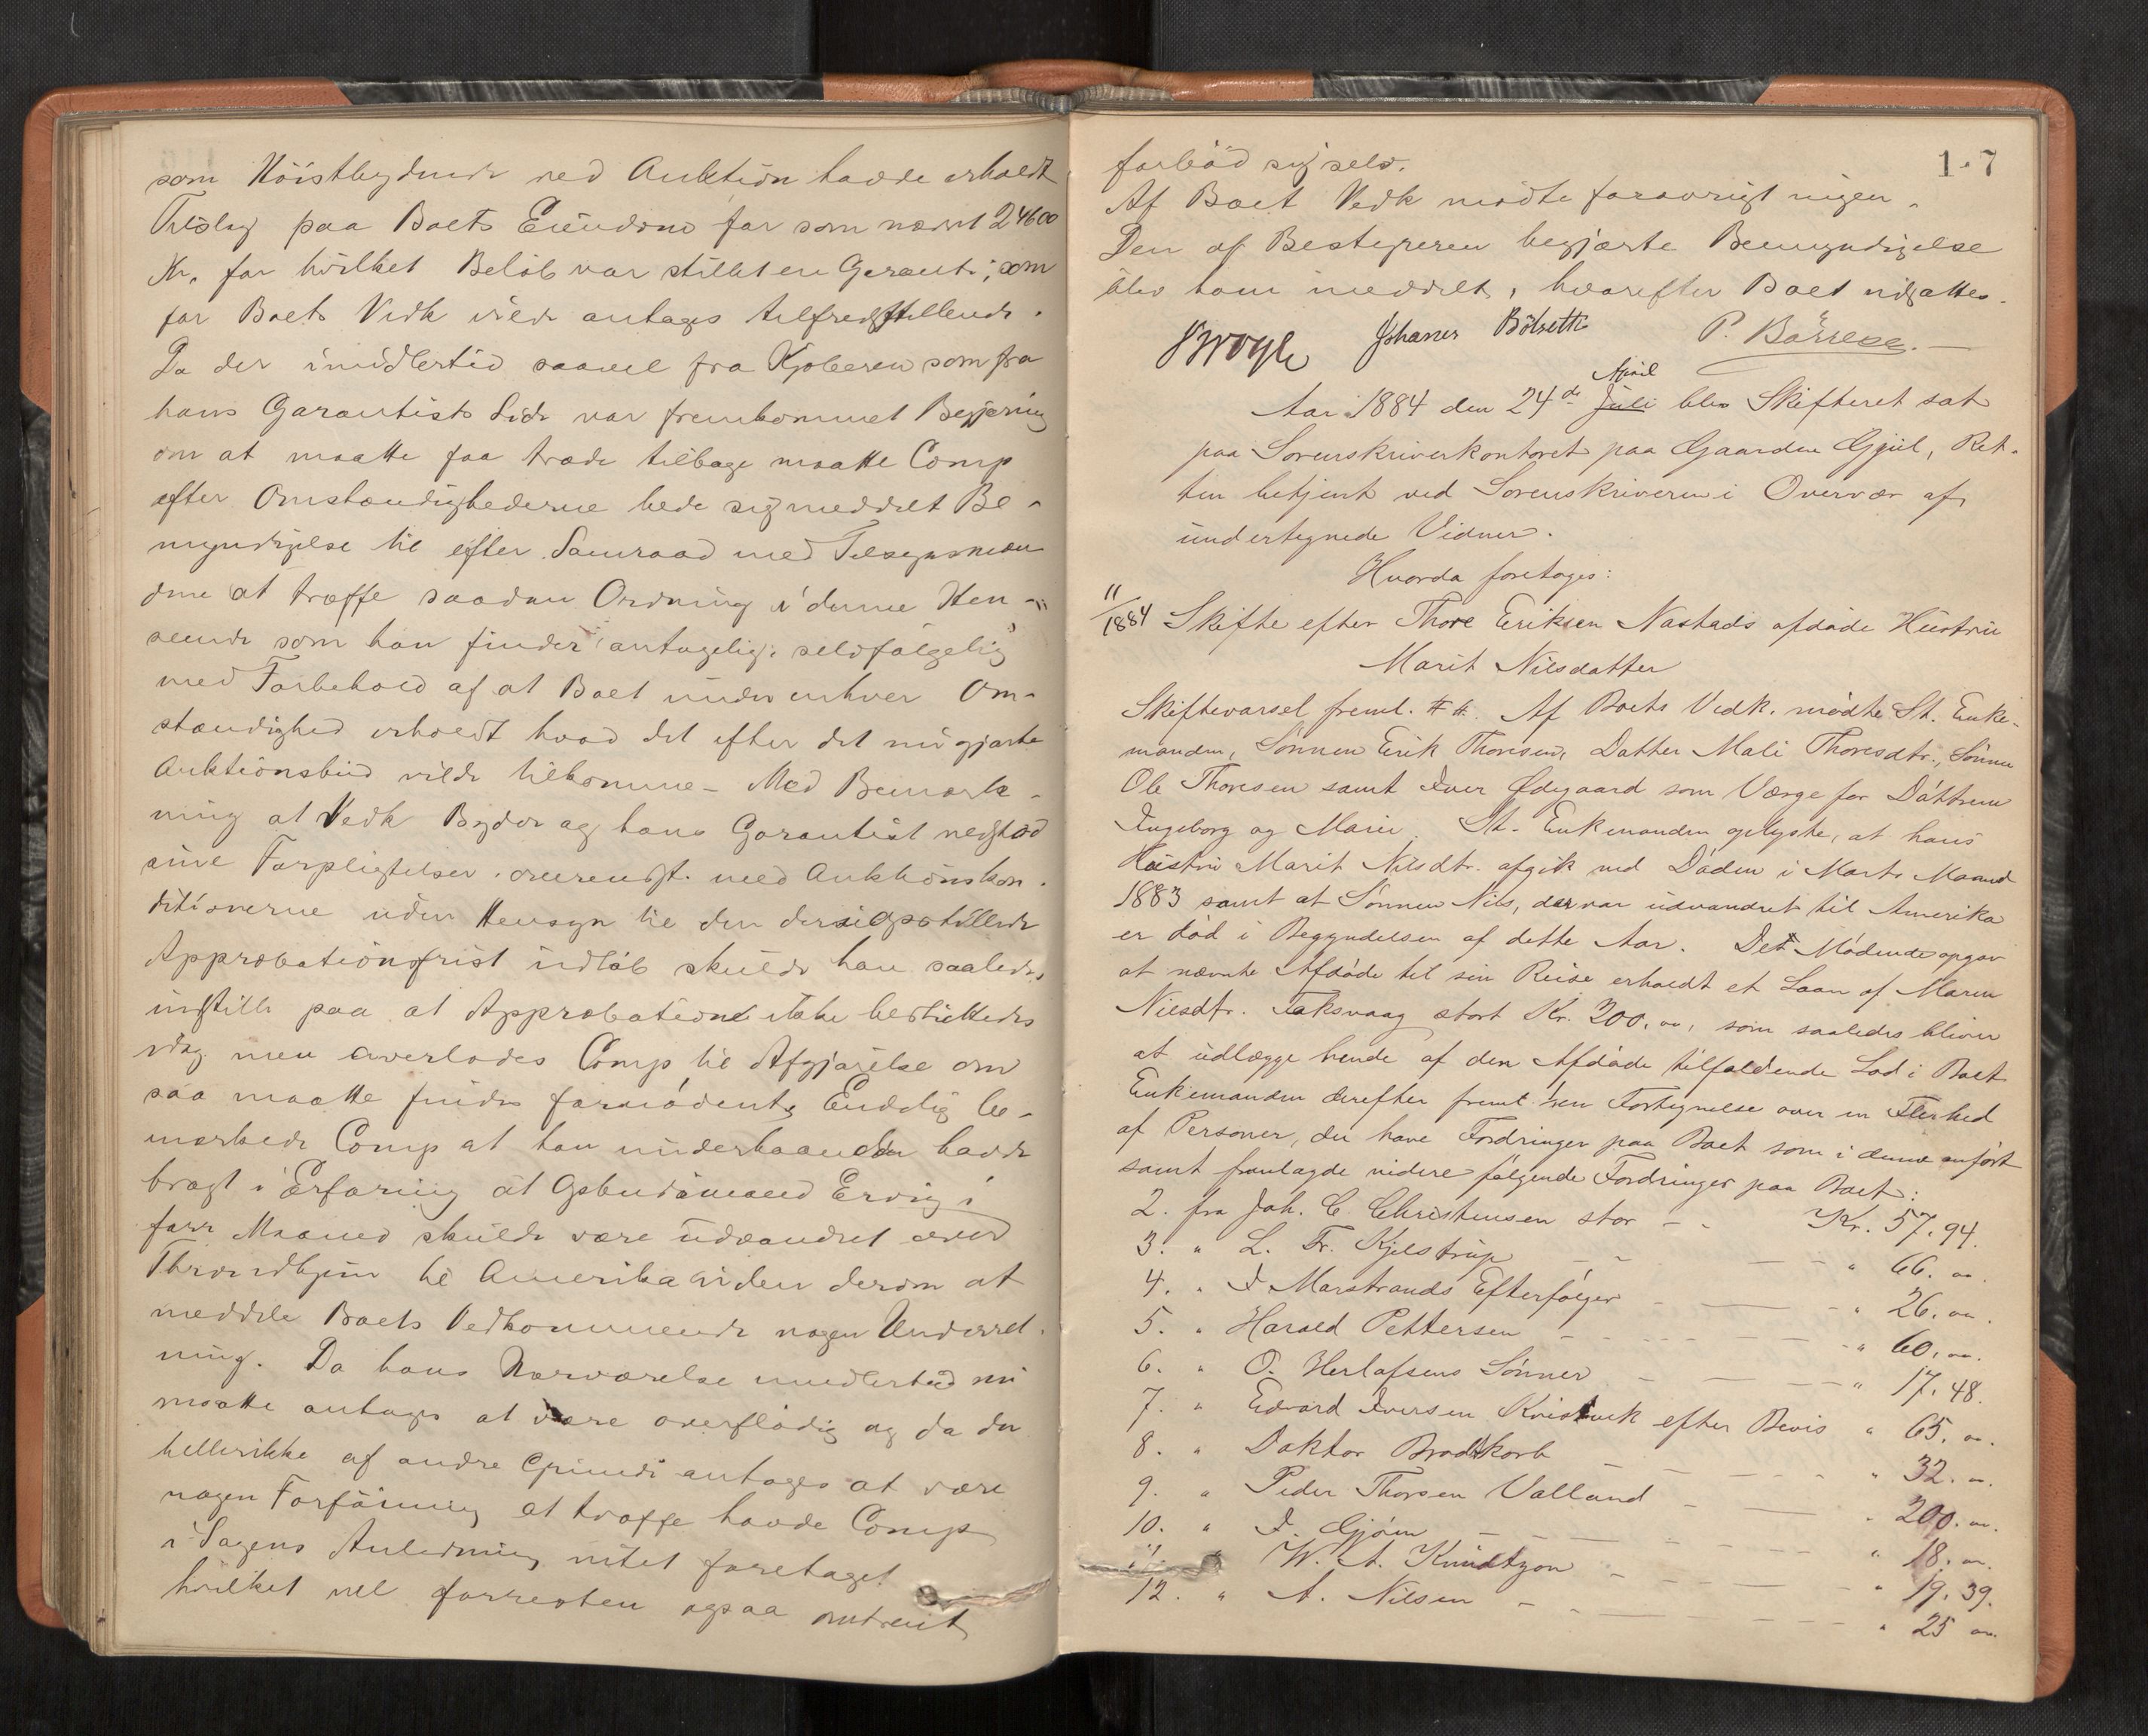 som Höistbydende ved Auktion havde erholdt
Tilslag paa Boets Eiendom for som nævnt 24600
Kr. for hvilket Beløb var stillet en Garanti, som
for Boets Vedk vilde antages tilfredsstillende.
Da der imidlertid saavel fra Kjøberen som fra
hans Garantists Side var fremkommet Begjæring
om at maatte faa træde tilbage maatte Comp
efter Omstændighederne bede sig meddelt Be-
myndigelse til efter Samraad med Tilsynsmæn
dene at træffe saadan Ordning i denne Hen-
seende som han finder antagelig, selvfølgelig
med Forbehold af at Boet under enhver Om-
stændighed erholdt hvad det efter det nu gjorte
Auktionsbud vilde tilkomme - Med Bemærk-
ning at Vedk Byder og hans Garantist vedstod
sine Forpligtelser overensst. med Auktionskon-
ditionerne uden Hensyn til den deri opstillede
Approbationsfrist udløb skulde han saaledes
instille paa at Approbation ikke besluttedes
idag men overlodes Comp til Afgjørelse om
saa maatte findes fornødent. Endelig be-
mærkede Comp at han underhaanden havde
bragt i Erfaring at Gsbudsmand Ervig i
forr Maaned skulde være udvandret over
Throndhjem til Amerika uden derom at
meddele Boets Vedkommende nogen Underret-
ning. Da hans Nærværelse imidlertid nu
maatte antages at være overflødig og da der
hellerikke af andre Grunde antages at være
nogen Forføining at træffe havde Comp
i Sagens Anledning intet foretaget
hvilket vel forresten ogsaa omtrent
1.7
forbød sig selv.
Af Boet Vedk mødte forøvrigt ingen.
Den af Bestyreren begjærte Bemyndigelse
blev ham meddelt, hvorefter Boet udsattes.
Johanes Bölsetli P. Börresen.
April
Aar 1884 den 24de Juli blev Skifteret sat
paa Sorenskriverkontoret paa Gaarden Gjül, Ret-
ten betjent ved Sorenskriveren i Overvær af
undertegnede Vidner.
Hvorda foretoges:
11/1884 Skifte efter Thore Eriksen Nastads afdøde Hustru
Marit Nilsdatter
Skiftevarsel freml. # #. Af Boets Vedk. mødte St. Enke-
manden, Sønnen Erik Thoresen, Datter Mali Thoresdtr., Sønnen
Ole Thoresen samt Iver Ødegaard som Værge for Døttrene
Ingeborg og Marie. St. Enkemanden oplyste, at hans
Hustru Marit Nilsdtr. afgik ved Døden i Marts Maaned
1883 samt at Sønnen Nils, der var udvandret til Amerika
er død i Begyndelsen af dette Aar. Det Mødende opgav
at nævnte Afdøde til sin Reise erholdt et Laan af Maren
Nilsdtr. Taksvaag stort Kr. 200.oo, som saaledes bliver
at udlægge hende af den Afdøde tilfaldende Lod i Boet
Enkemanden derefter freml. en Fortegnelse over en Flerhed
af Personer, der have Fordringer paa Boet som i denne anført
samt fremlagde videre følgende Fordringer paa Boet:
2. fra Joh. C. Christensen stor - - Kr. 57.94.
3. " L. Fr. Kjelstrup - - " 66. oo.
4. " I Marstrands Efterfølger - - " 26. oo.
5. " Harald Pettersen - - " 60. oo.
6. " O. Herlofsens Sønner - - " 17.48.
7. " Edvard Iversen Kristvik efter Bevis " 65. oo.
8. " Doktor Brodtkorb - - " 32. oo.
9. " Peder Thorsen Valland - - " 200. oo.
10. " I. Gjøen - - " 18. oo.
11. " W. A. Knudtzon - - " 19.39.
12. " A. Nilsen - - " 25 oo.